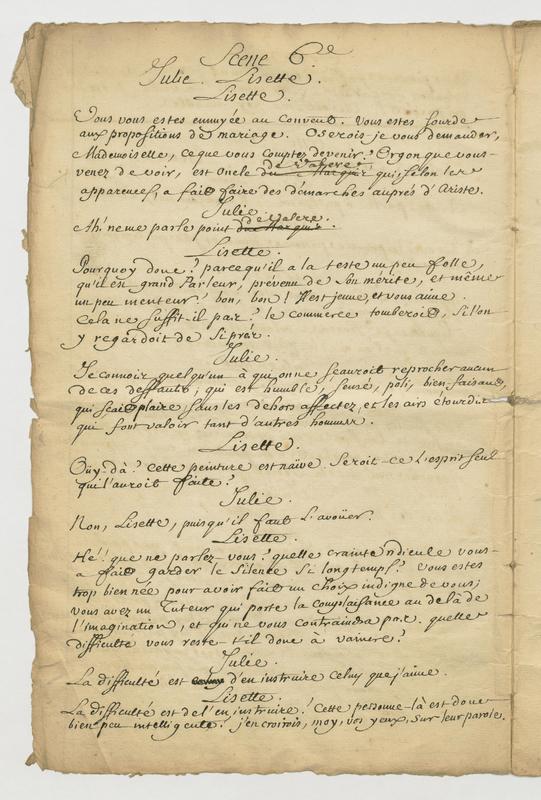 Scene 6.e
Julie. Lisette.
Lisette.
Vous vous estes ennuyée au Convent. Vous estes sourde
aux propositions de mariage. Oserois-je vous demander,
Mademoiselle, ce que vous comptez devenir? Ergon que vous-
de Valere
venez de voir, est Oncle du Marquis qui, selon les
apparences, a fait faire des démarches auprés d'Ariste.
Julie.
de Valere.
Ah! ne me parle point du Marquis.
Lisette.
Pourquoy donc? parce qu'il a la teste un peu folle,
qu'il est grand Parleur, prévenu de son mérite, et même
un peu menteur? bon, bon! Il est jeune, et vous aime.
Cela ne suffit-il pas? le commerce tomberoit, si l'on
y regardoit de si prés.
Julie.
Je connois quelqu'un à qui on ne sçauroit reprocher aucun
de ces deffauts; qui est humble, sensé, poli, bien-faisant,
qui sçait plaire, sans les dehors affectez, et les airs étourdis
qui font valoir tant d'autres hommes.
Lisette.
Oüy-dà? Cette peinture est naïve. Seroit-ce l'esprit seul
qui l'auroit faite?
Julie.
Non, Lisette, puisqu'il faut l'avoüer.
Lisette.
Hé! que ne parlez-vous? quelle crainte ridicule vous-
a fait garder le silence si longtemps? Vous estes
trop bien née pour avoir fait un choix indigne de vous;
vous avez un Tuteur qui porte la complaisance au delà de
l'imagination, et qui ne vous contraindra pas. quelle
difficulté vous reste-t'il donc à vaincre?
Julie.
La difficulté est d'en instruire celuy que j'aime.
Lisette.
La difficulté est de l'en instruire! Cette personne-là est donc
bien peu intelligente? j'en croirois, moy, vos yeux, sur leur parole.